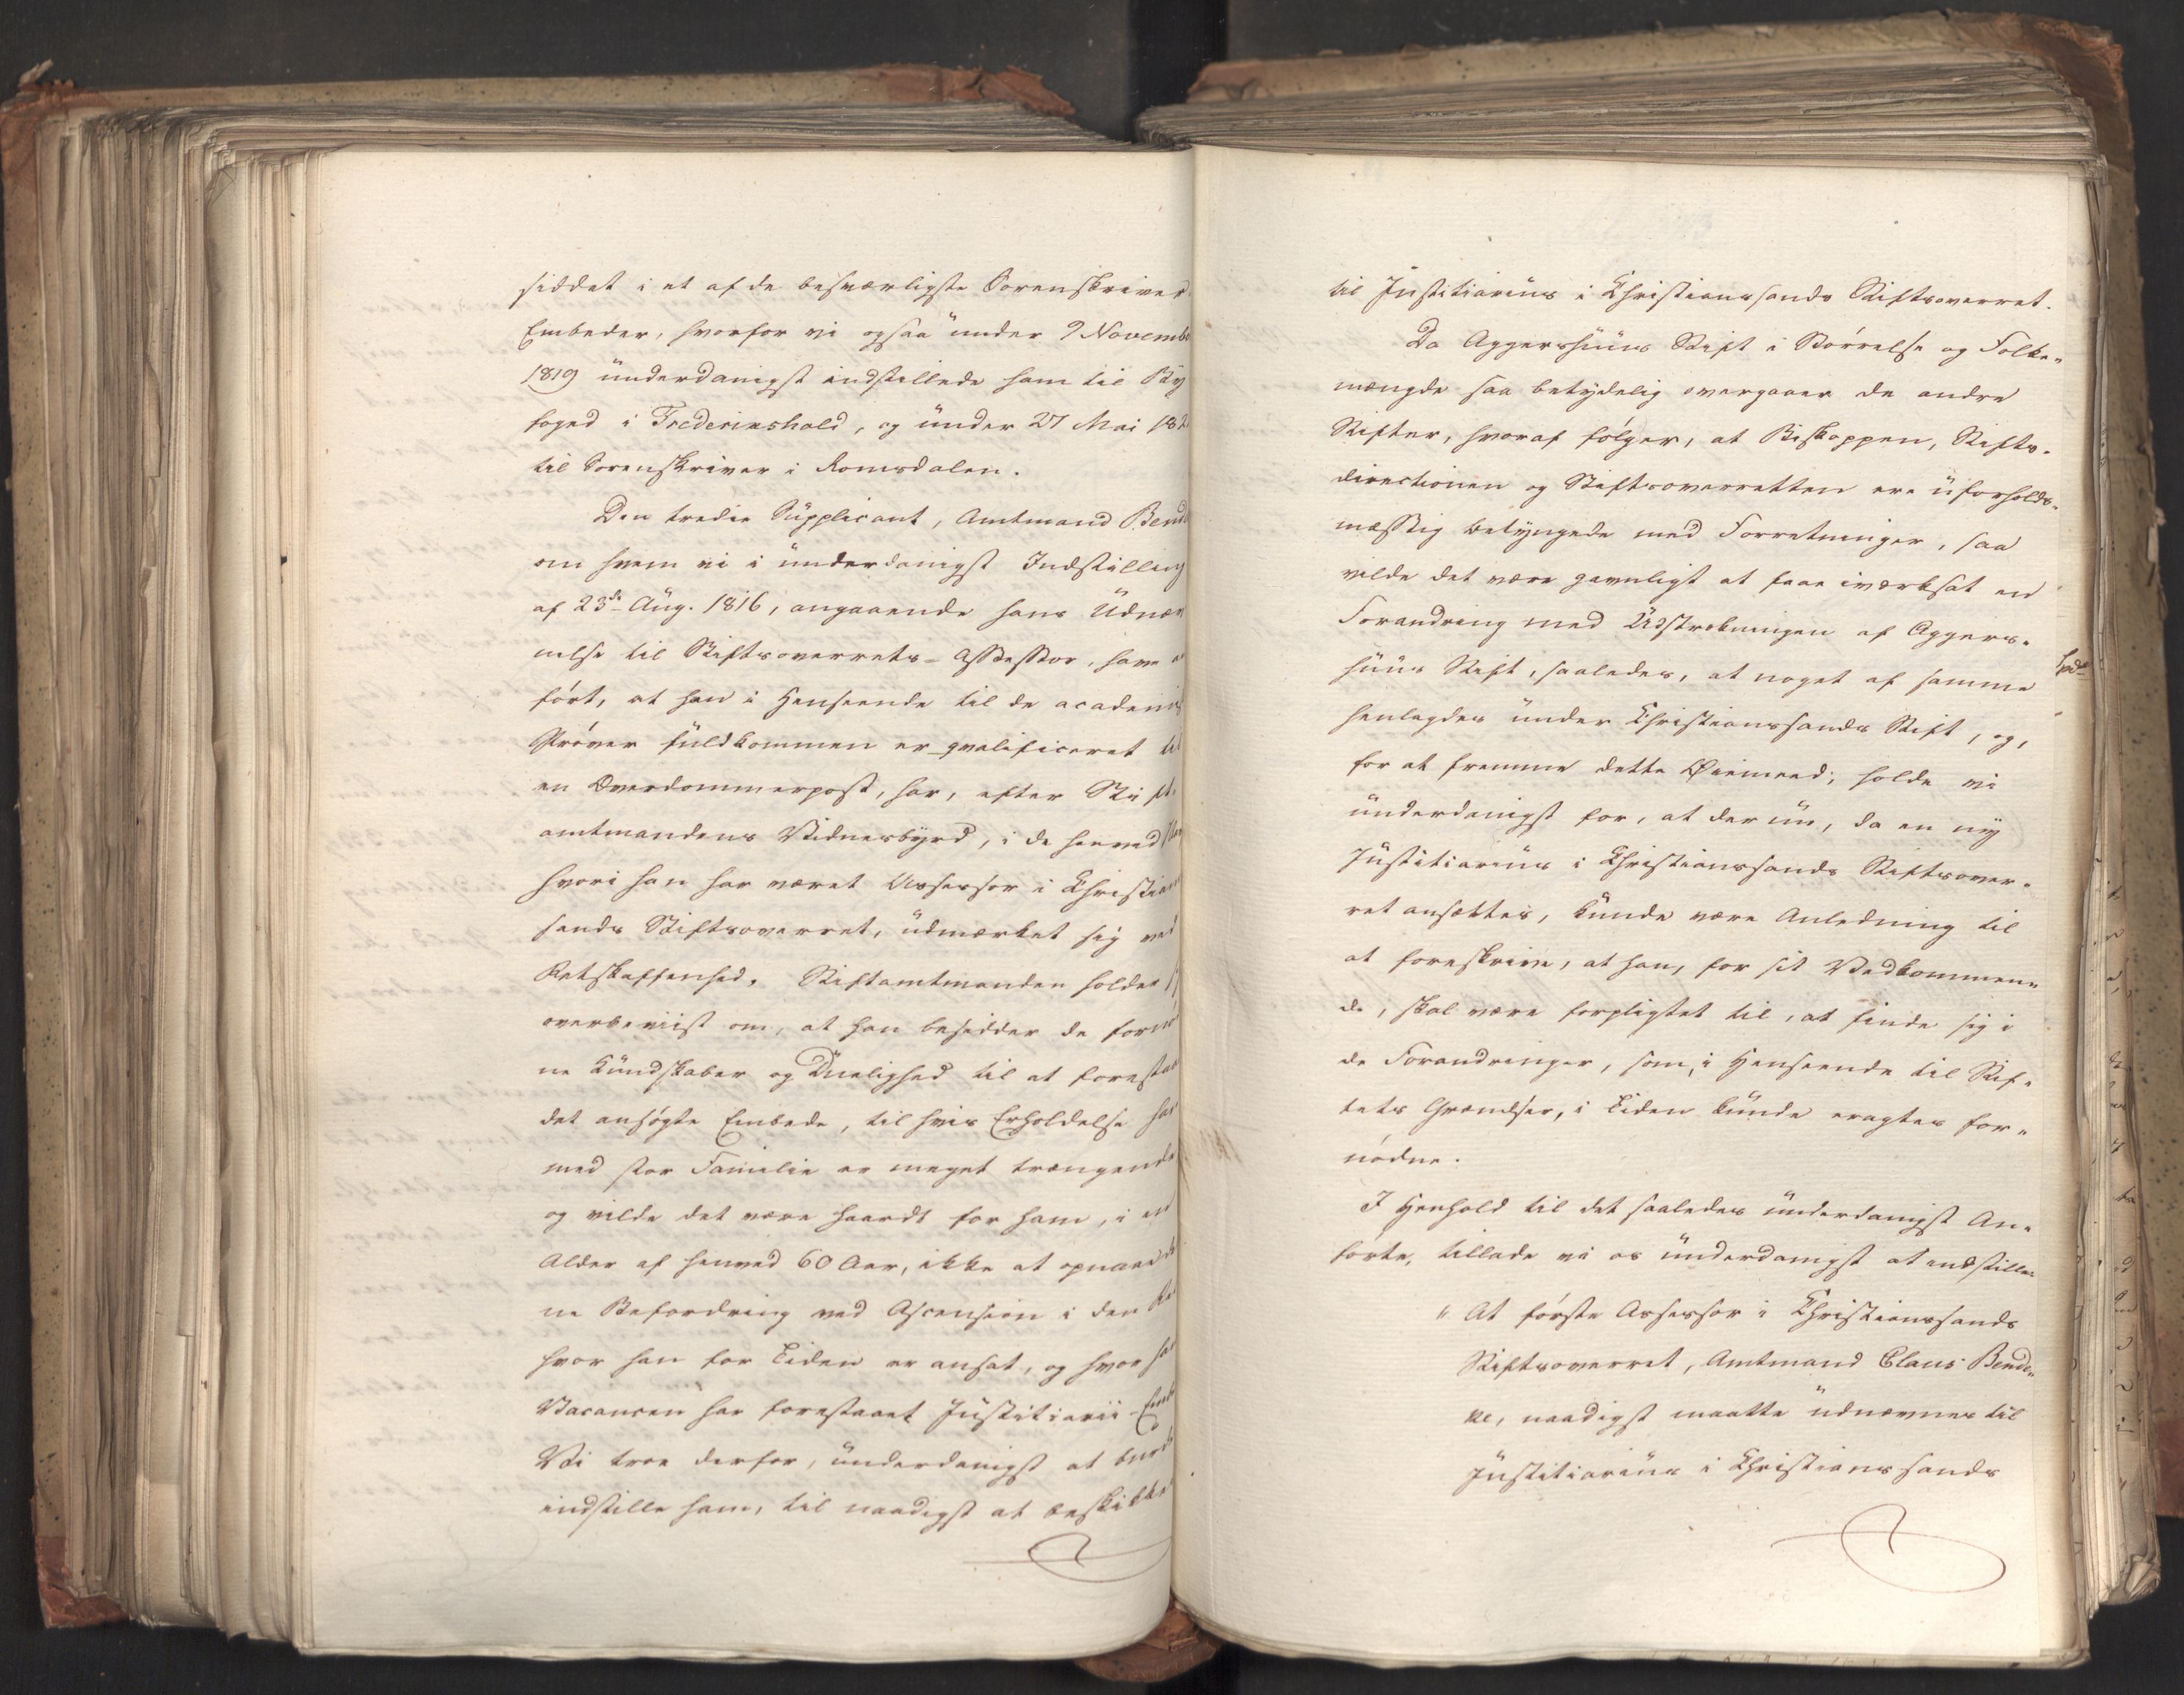 siddet i et af de besværligste Sorenskriver
Embeder, hvorfor vi ogsaa under 9 Novemb
1819 underdanigst indstillede ham til By
foged i Fredericshald, og under 27 Mai 182
til Sorenskriver i Romsdalen.
Den tredie Supplicant, Amtmand Bend
om hvem vi i underdanigst Indstilling
af 23de Aug. 1816, angaaende hans Udnæv
nelse til Stiftsoverrets-Assessor, have a
ført, at han i Henseende til de academis
Prøver fuldkommen er qvalificeret til
en Overdommerpost, har, efter Stift
amtmandens Vidnesbyrd, i de henved
hvori han har været Assessor i Christian
sands Stiftsoverret, udmærket sig ved
Retskaffenhed. Stiftamtmanden holder
overbeviist om, at han besidder de forn
ne Kundskaber og Duelighed til at forestaa
det ansøgte Embede, til hvis Erholdelse han
med stor Familie er meget trængende
og vilde det være haardt for ham, i en
Alder af henved 60 Aar, ikke at opnaae de
ne Befordring ved Ascension i den Ret
hvor han for Tiden er ansat, og hvor han
Vacancen har forestaaet Justitiarii-Emb
Vi troe derfor, underdanigst at burde
indstille ham, til naadigst at beskikkes
til Justitiarius i Christianssands Stiftsoverret.
Da Aggershuus Stift i Størrelse og Folke-
mængde saa betydelig overgaaer de andre
Stifter, hvoraf følger, at Biskoppen, Stifts-
directionen og Stiftsoverretten ere uforholds-
mæssig betyngede med Forretninger, saa
vilde det være gavnligt at faae iværksat en
Forandring med Udstrekningen af Aggers-
huus Stift, saaledes, at noget af samme
henlagdes under Christianssands Stift, og,
for at fremme dette Øiemeed, holde vi
underdanigst for, at der nu, da en ny
Justitiarius i Christianssands Stiftsover-
ret ansættes, kunde være Anledning til
at foreskrive, at han, for sit Vedkommen-
de, skal være forpligtet til, at finde sig i
de Forandringer, som, i Henseende til Stif-
tets Grændser, i Tiden kunde eragtes for-
nødne.
I Henhold til det saaledes underdanigst An-
førte, tillade vi os underdanigst at indstille:
" At første Assessor i Christianssands
Stiftsoverret, Amtmand Claus Bende-
ke, naadigst maatte udnævnes til
Justitiarius i Christianssands